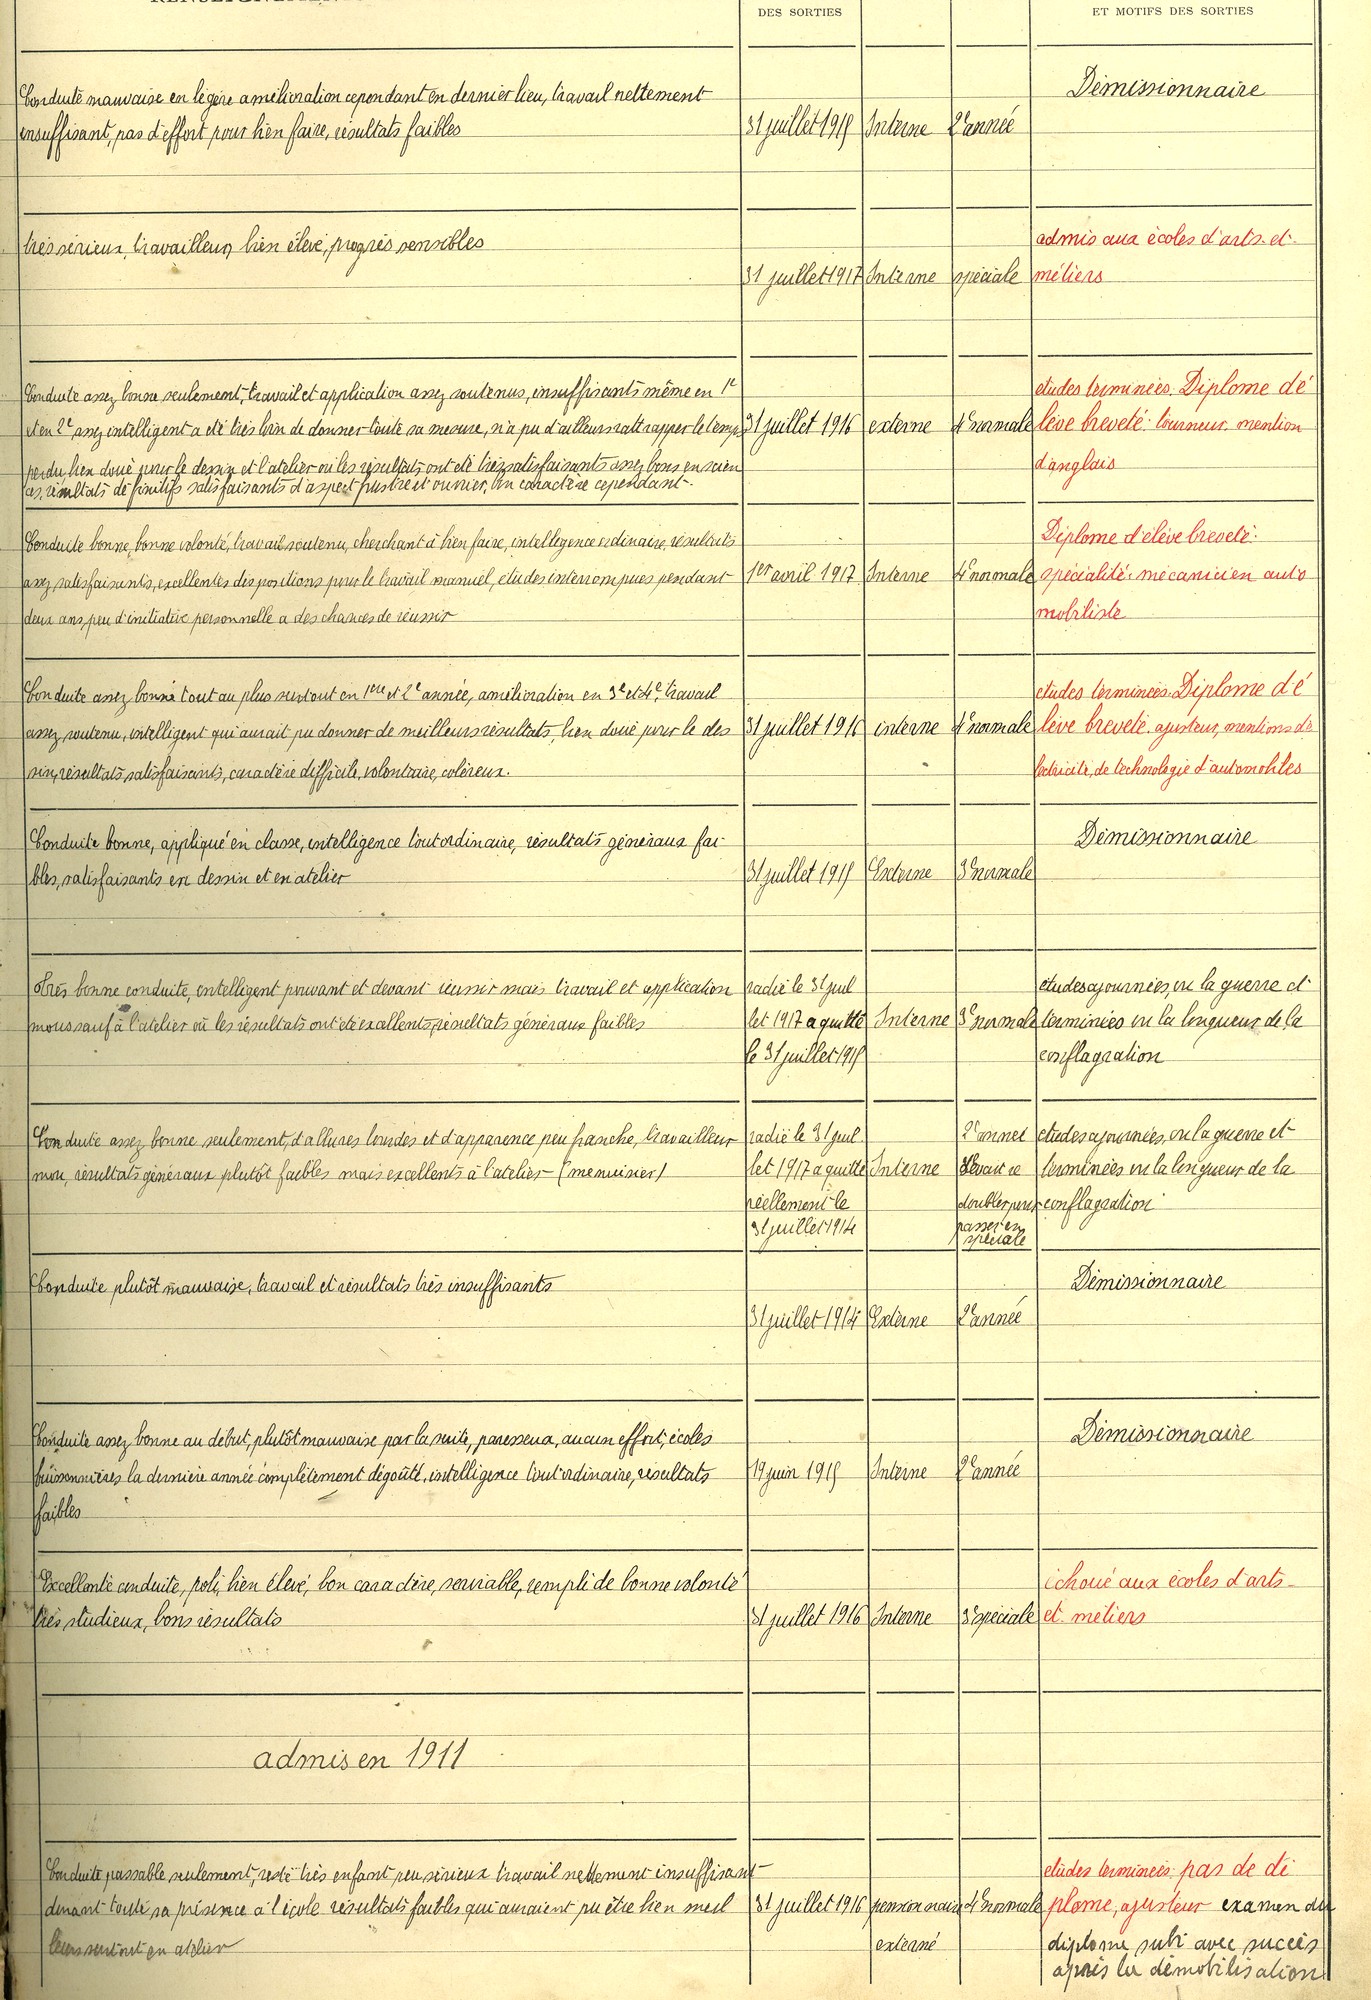 DES SORTIES
ET MOTIFS DES SORTIES
Conduite mauvaise en légère amélioration cependant en dernier lieu, travail nettement
insuffisant, pas d'effort pour bien faire, résultats faibles
31 juillet 1915
Interne
2e année
Démissionnaire
très sérieux, travailleur, bien élevé, progrès sensibles
31 juillet 1917
Interne
spéciale
admis aux écoles d'arts et
métiers
Conduite assez bonne seulement, travail et application assez soutenus, insuffisants même en 1e
et en 2e assez intelligent a été très loin de donner toute sa mesure, n'a pu d'ailleurs rattrapper le temps
perdu bien doué pour le dessin et l'atelier où les résultats ont été très satisfaisants assez bons en scien
ces, résultats définitifs satisfaisants d'aspect frustre et ouvrier, bon caractère cependant.
31 juillet 1916
externe
4e normale
etudes terminées. Diplome d'é
lève breveté: tourneur mention
d'anglais
Conduite bonne, bonne volonté, travail soutenu, cherchant à bien faire, intellegence ordinaire, résultats
assez satisfaisants, excellentes dispositions pour le travail manuel, études interrompues pendant
deux ans, peu d'initiative personnelle a des chances de réussir
1er avril 1917
Interne
4e normale
Diplome d'élève breveté:
spécialité: mécanicien auto
mobiliste
Conduite assez bonne tout au plus surtout en 1ere et 2e année, amélioration en 3e et 4e, travail
assez soutenu, intelligent qui aurait pu donner de meilleurs résultats, bien doué pour le des
sin, résultats satisfaisants, caractère difficile, volontaire, coléreux.
31 juillet 1916
interne
4e normale
etudes terminées. Diplome d'é
lève breveté. ajusteur, mentions d'é
lectricité, de technologie d'automobiles
Conduite bonne, appliqué en classe, intelligence tout ordinaire, résultats généraux fai
bles, satisfaisants en dessin et en atelier
31 juillet 1915
Externe
3e normale
Démissionnaire
Très bonne conduite, intelligent pouvant et devant réussir mais travail et application
mous sauf à l'atelier où les résultats ont été excellents, résultats généraux faibles
radié le 31 juil
let 1917 a quitté
le 31 juillet 1915
Interne
3e normale
études ajournées, vu la guerre et
terminées vu la longueur de la
conflagration
Conduite assez bonne seulement, d'allures lourdes et d'apparence peu franche, travailleur
mou, résultats généraux plutôt faibles mais excellents à l'atelier (menuisier)
radié le 31 juil.
let 1917 a quitté
réellement le
31 juillet 1914
Interne
2e année
devait re
doubler pour
passer en
spéciale
études ajournées, vu la guerre et
terminées vu la longueur de la
conflagration
Conduite plutôt mauvaise, travail et résultats très insuffisants
31 juillet 1914
Externe
2e année
Démissionnaire
Conduite assez bonne au début, plutôt mauvaise par la suite, paresseux, aucun effort, écoles
buissonnières la dernière année complètement dégoûté, intelligence tout ordinaire, résultats
faibles
19 juin 1915
Interne
2e année
Démissionnaire
Excellente conduite, poli, bien élevé, bon caractère, serviable, rempli de bonne volonté
très studieux, bons résultats
31 juillet 1916
Interne
3e spéciale
échoué aux écoles d'arts
et métiers
admis en 1911
Conduite passable seulement, resté très enfant peu sérieux travail nettement insuffisant
durant toute sa présence à l'école résultats faibles qui auraient pu être bien meil
leurs surtout en atelier
31 juillet 1916
pensionnaire
externé
4e normale
etudes terminées pas de di
plome, ajusteur examen du
diplome subi avec succès
après la démobilisation